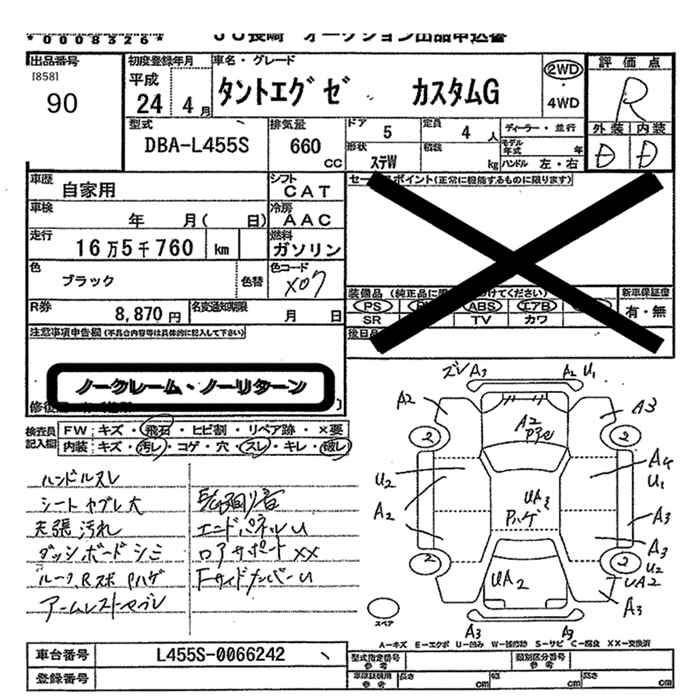 *0008526*
JU長崎 オークション出品申込書
出品番号
[858]
90
初度登録年月
平成
24 4月
車名・グレード
タントエグゼ カスタムG
2WD
・
4WD
評価点
R
外装 内装
D D
型式
DBA-L455S
排気量
660
CC
ドア 5
形状 ステW
定員 4人
積載 kg
ディーラー・並行
モデル年式 年
ハンドル 左・右
車歴
自家用
シフト
CAT
車検
年 月( 日)
冷房
AAC
走行
16万5千760 km
燃料
ガソリン
色
ブラック
色替
色コード
X07
R券
8,870円
名変通知期限
月 日
セールスポイント(正常に機能するものに限ります)
装備品
PS
ABS
エアB
SR
TV
カワ
新車保証書
有・無
注意事項申告欄(不具合内容等は具体的に記入して下さい)
ノークレーム・ノーリターン
検査員
記入欄
FW:キズ・飛石・ヒビ割・リペア跡・×要
内装:キズ・汚レ・コゲ・穴・スレ・キレ・破レ
ハンドルスレ
シートヤブレ大
天張汚れ
ダッシボードシミ
ルーフ、Rスポ Pハゲ
アームレストヤブレ
エンドパネルU
ロアサポートXX
FサイドメンバーU
ズレ A3
A2 U1
A2
A3
A2
2
2
U2
A2
A4
U1
UA3
Pハゲ
A3
A3
2
2
U2
UA2
UA2
A3
A3
A3
スペア
A-キズ E-エクボ U-凹ミ W-補修跡 S-サビ C-腐食 XX-交換済
車台番号
L455S-0066242
登録番号
型式指定番号
参考
類別区分番号
参考
車庫証明用
参考
長さ cm
幅 cm
高さ cm